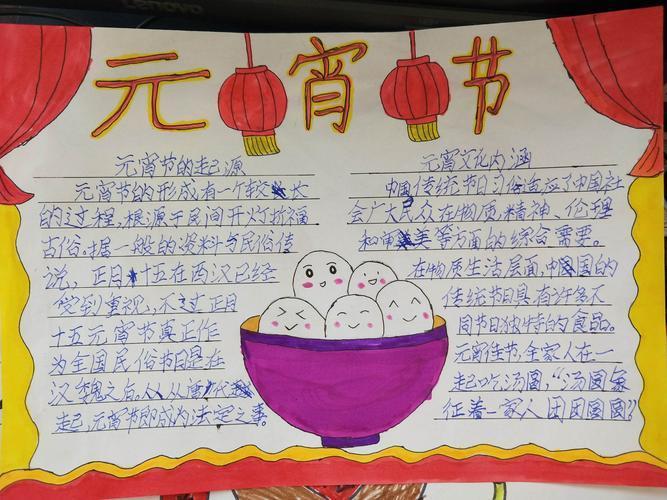 Lenovo
元宵节
元宵节的起源
元宵节的形成有一个较长
的过程,根源于民间开灯祈福
古俗.据一般的资料与民俗传
说,正月十五在西汉已经
受到重视,不过正月
十五元宵节真正作
为全国民俗节日是在
汉魏之后.从唐代
起,元宵节即成为法定之事.
元宵文化内涵
中国传统节日习俗适应了中国社
会广大民众在物质,精神、伦理
和审美等方面的综合需要。
在物质生活层面,中国的
传统节日具有许多不
同节日独特的食品。
元宵佳节,全家人在一
起吃汤圆,“汤圆象
征着一家人团团圆圆”